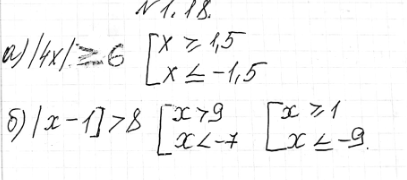 N 1.18.
а) |4x| ≥ 6 [x ≥ 1,5
x ≤ -1,5
б) |x-1| > 8 [x > 9 [x ≥ 1
x < -7 x ≤ -9.